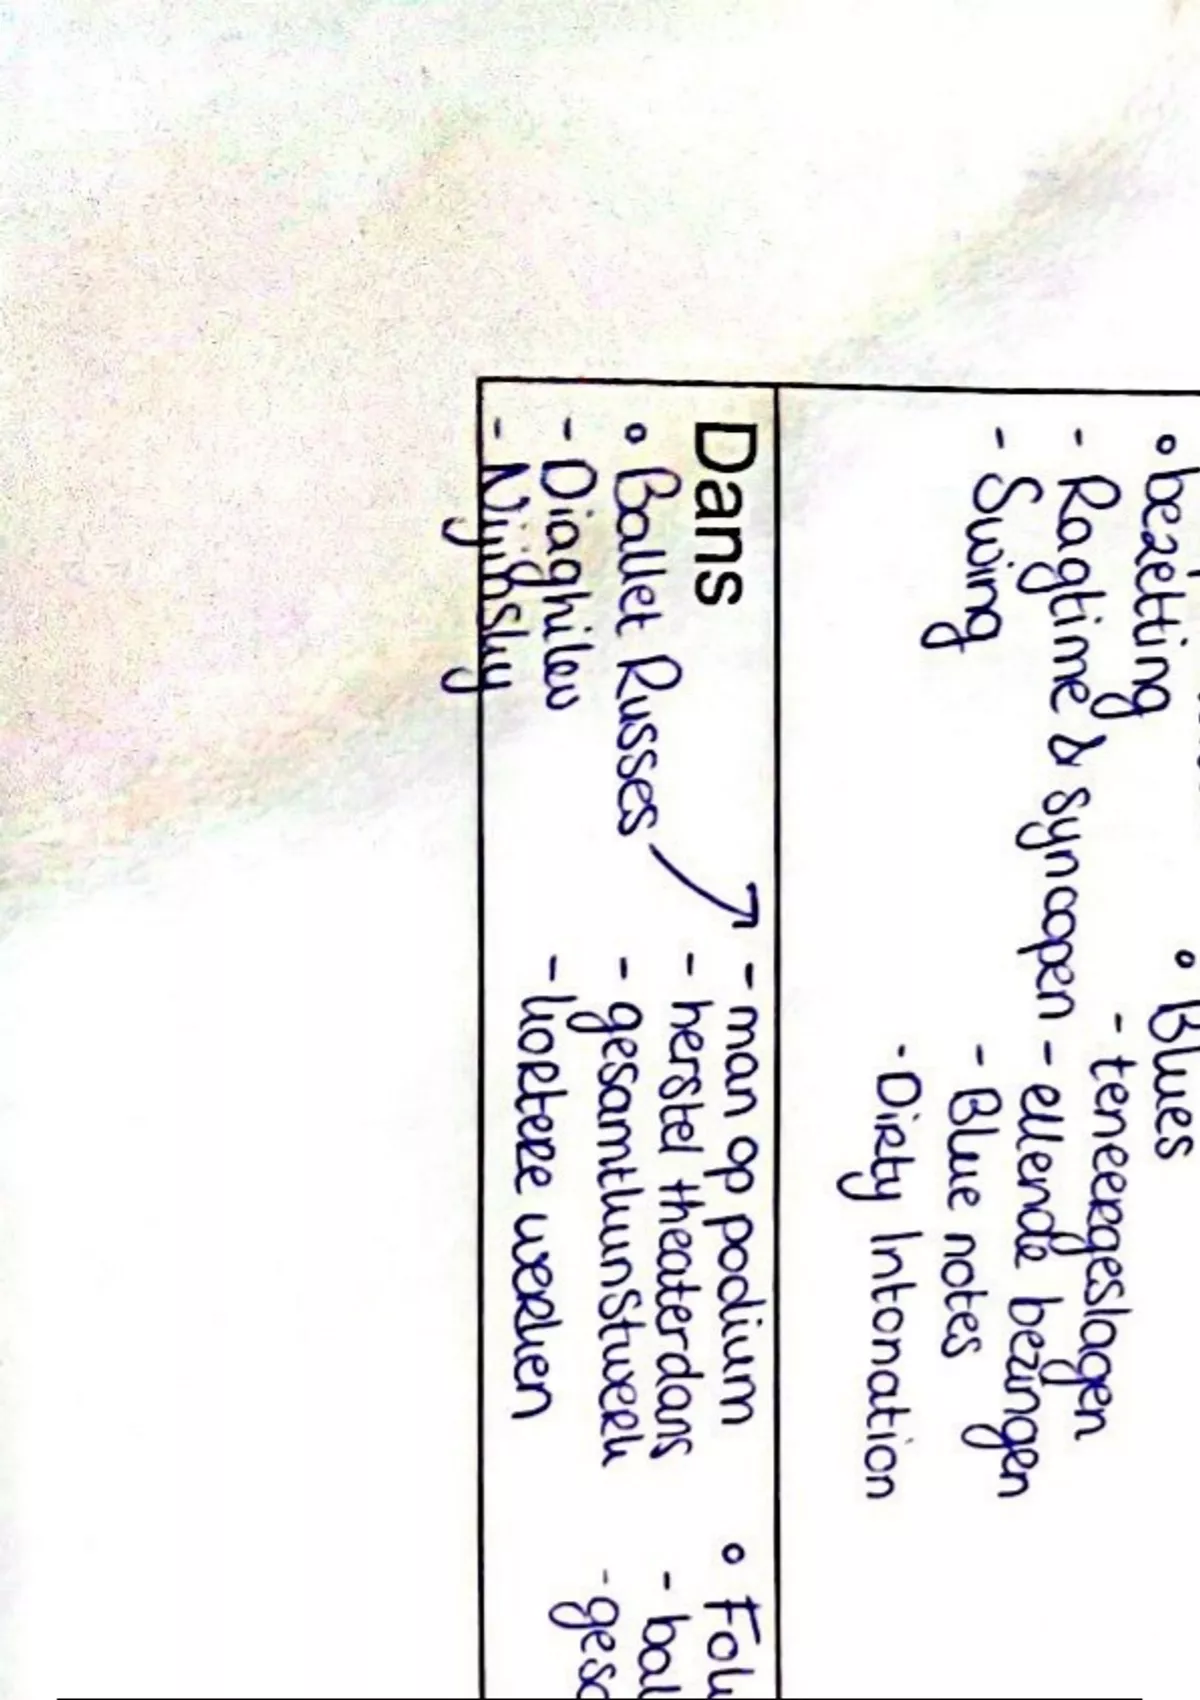 • bezetting
- Ragtime & syncopen
- Swing
• Blues
- teneergeslagen
- ellende bezingen
- Blue notes
- Dirty Intonation
Dans
• Ballet Russes
- Diaghilev
- Nijinsky
- man op podium
- herstel theaterdans
- gesamtkunstwerk
- kortere werken